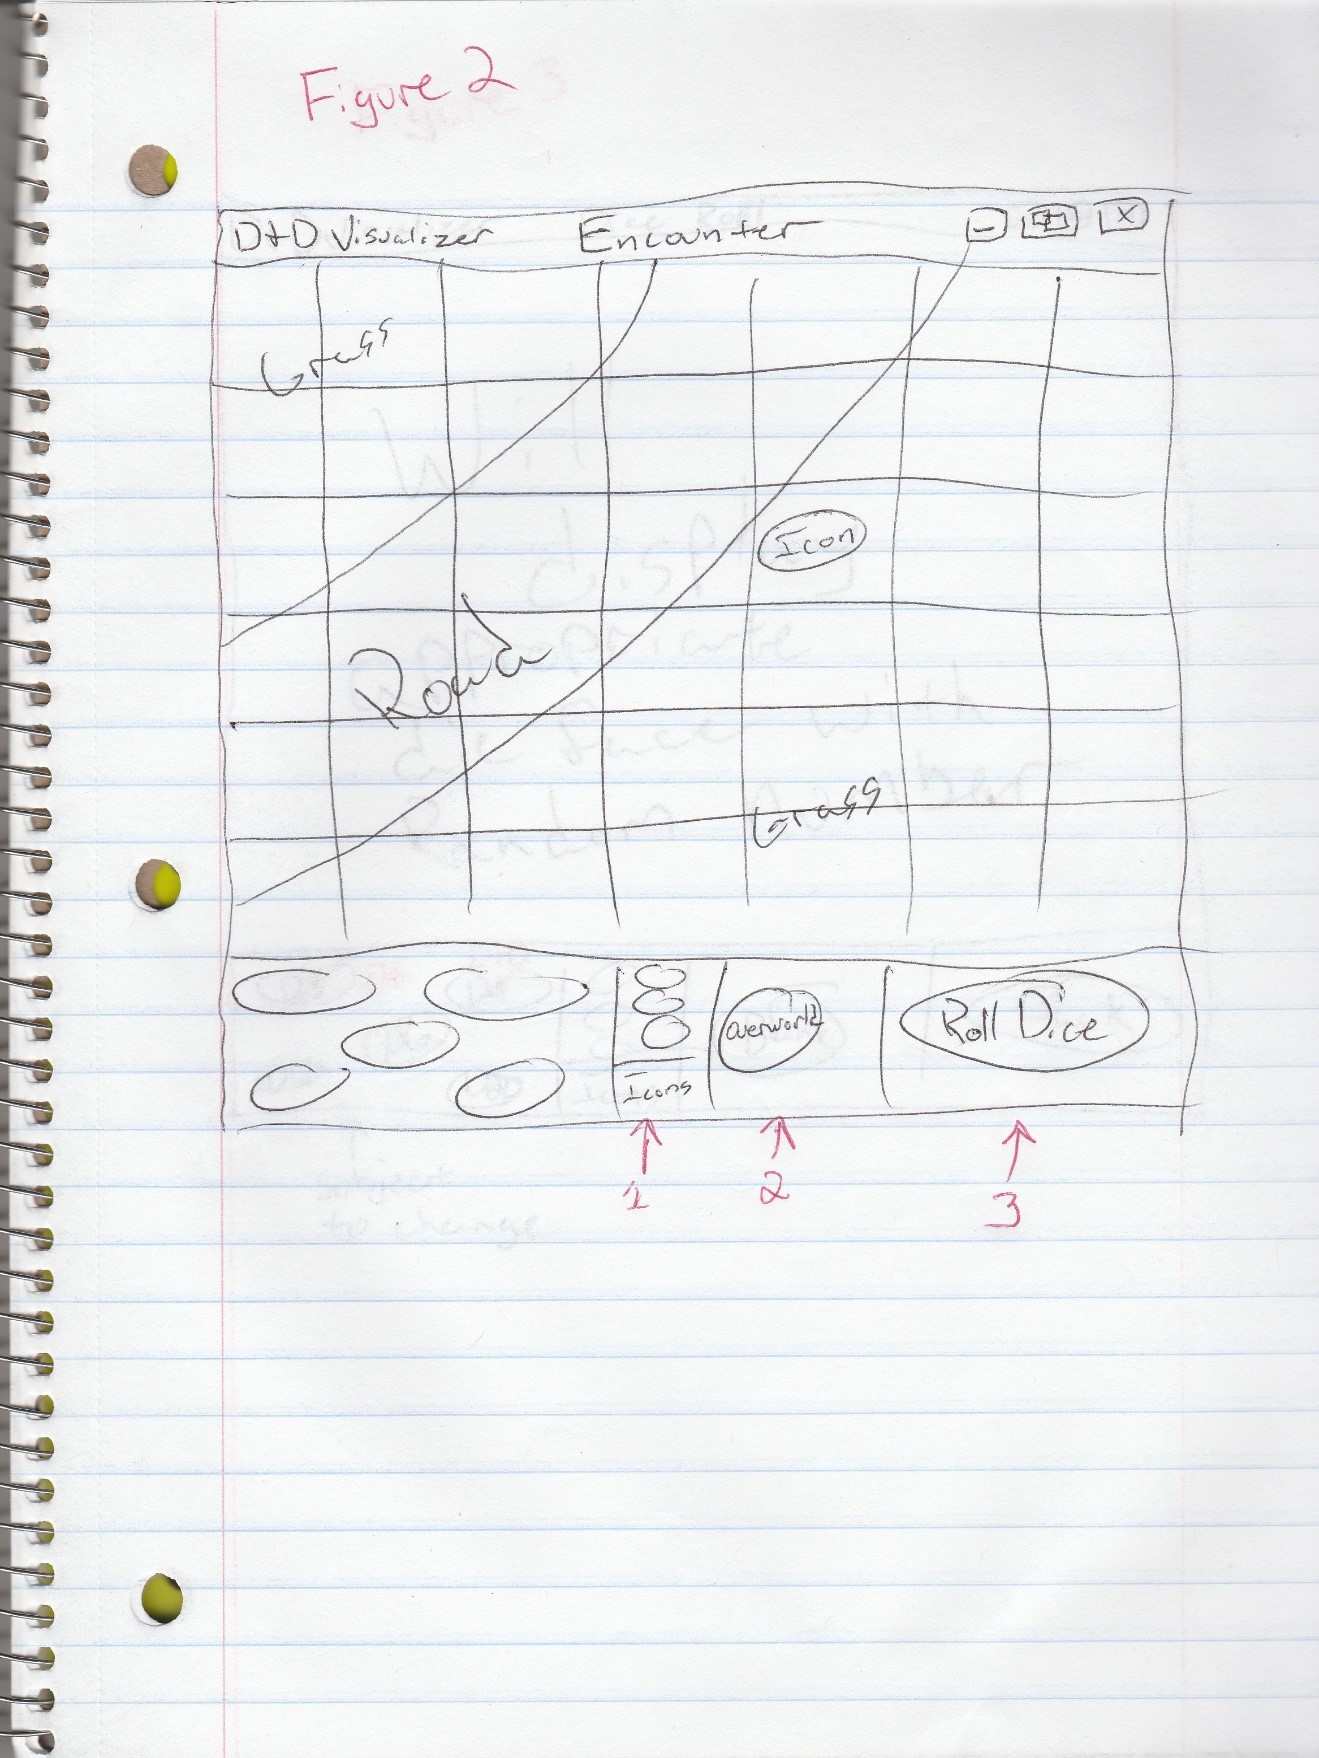 Figure 2
D+D Visualizer Encounter - + X
Grass
Icon
Road
Grass
overworld Roll Dice
Icons
1 2 3